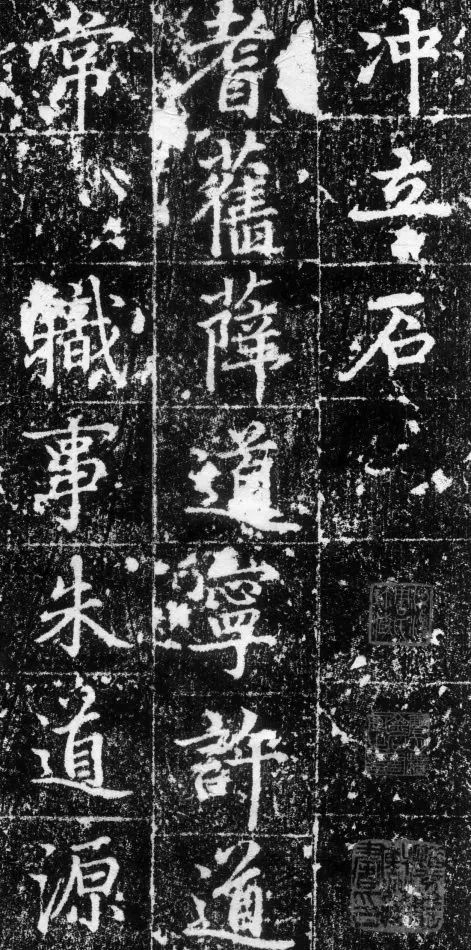 冲立石
耆舊薛道寧許道
常 職事朱道源